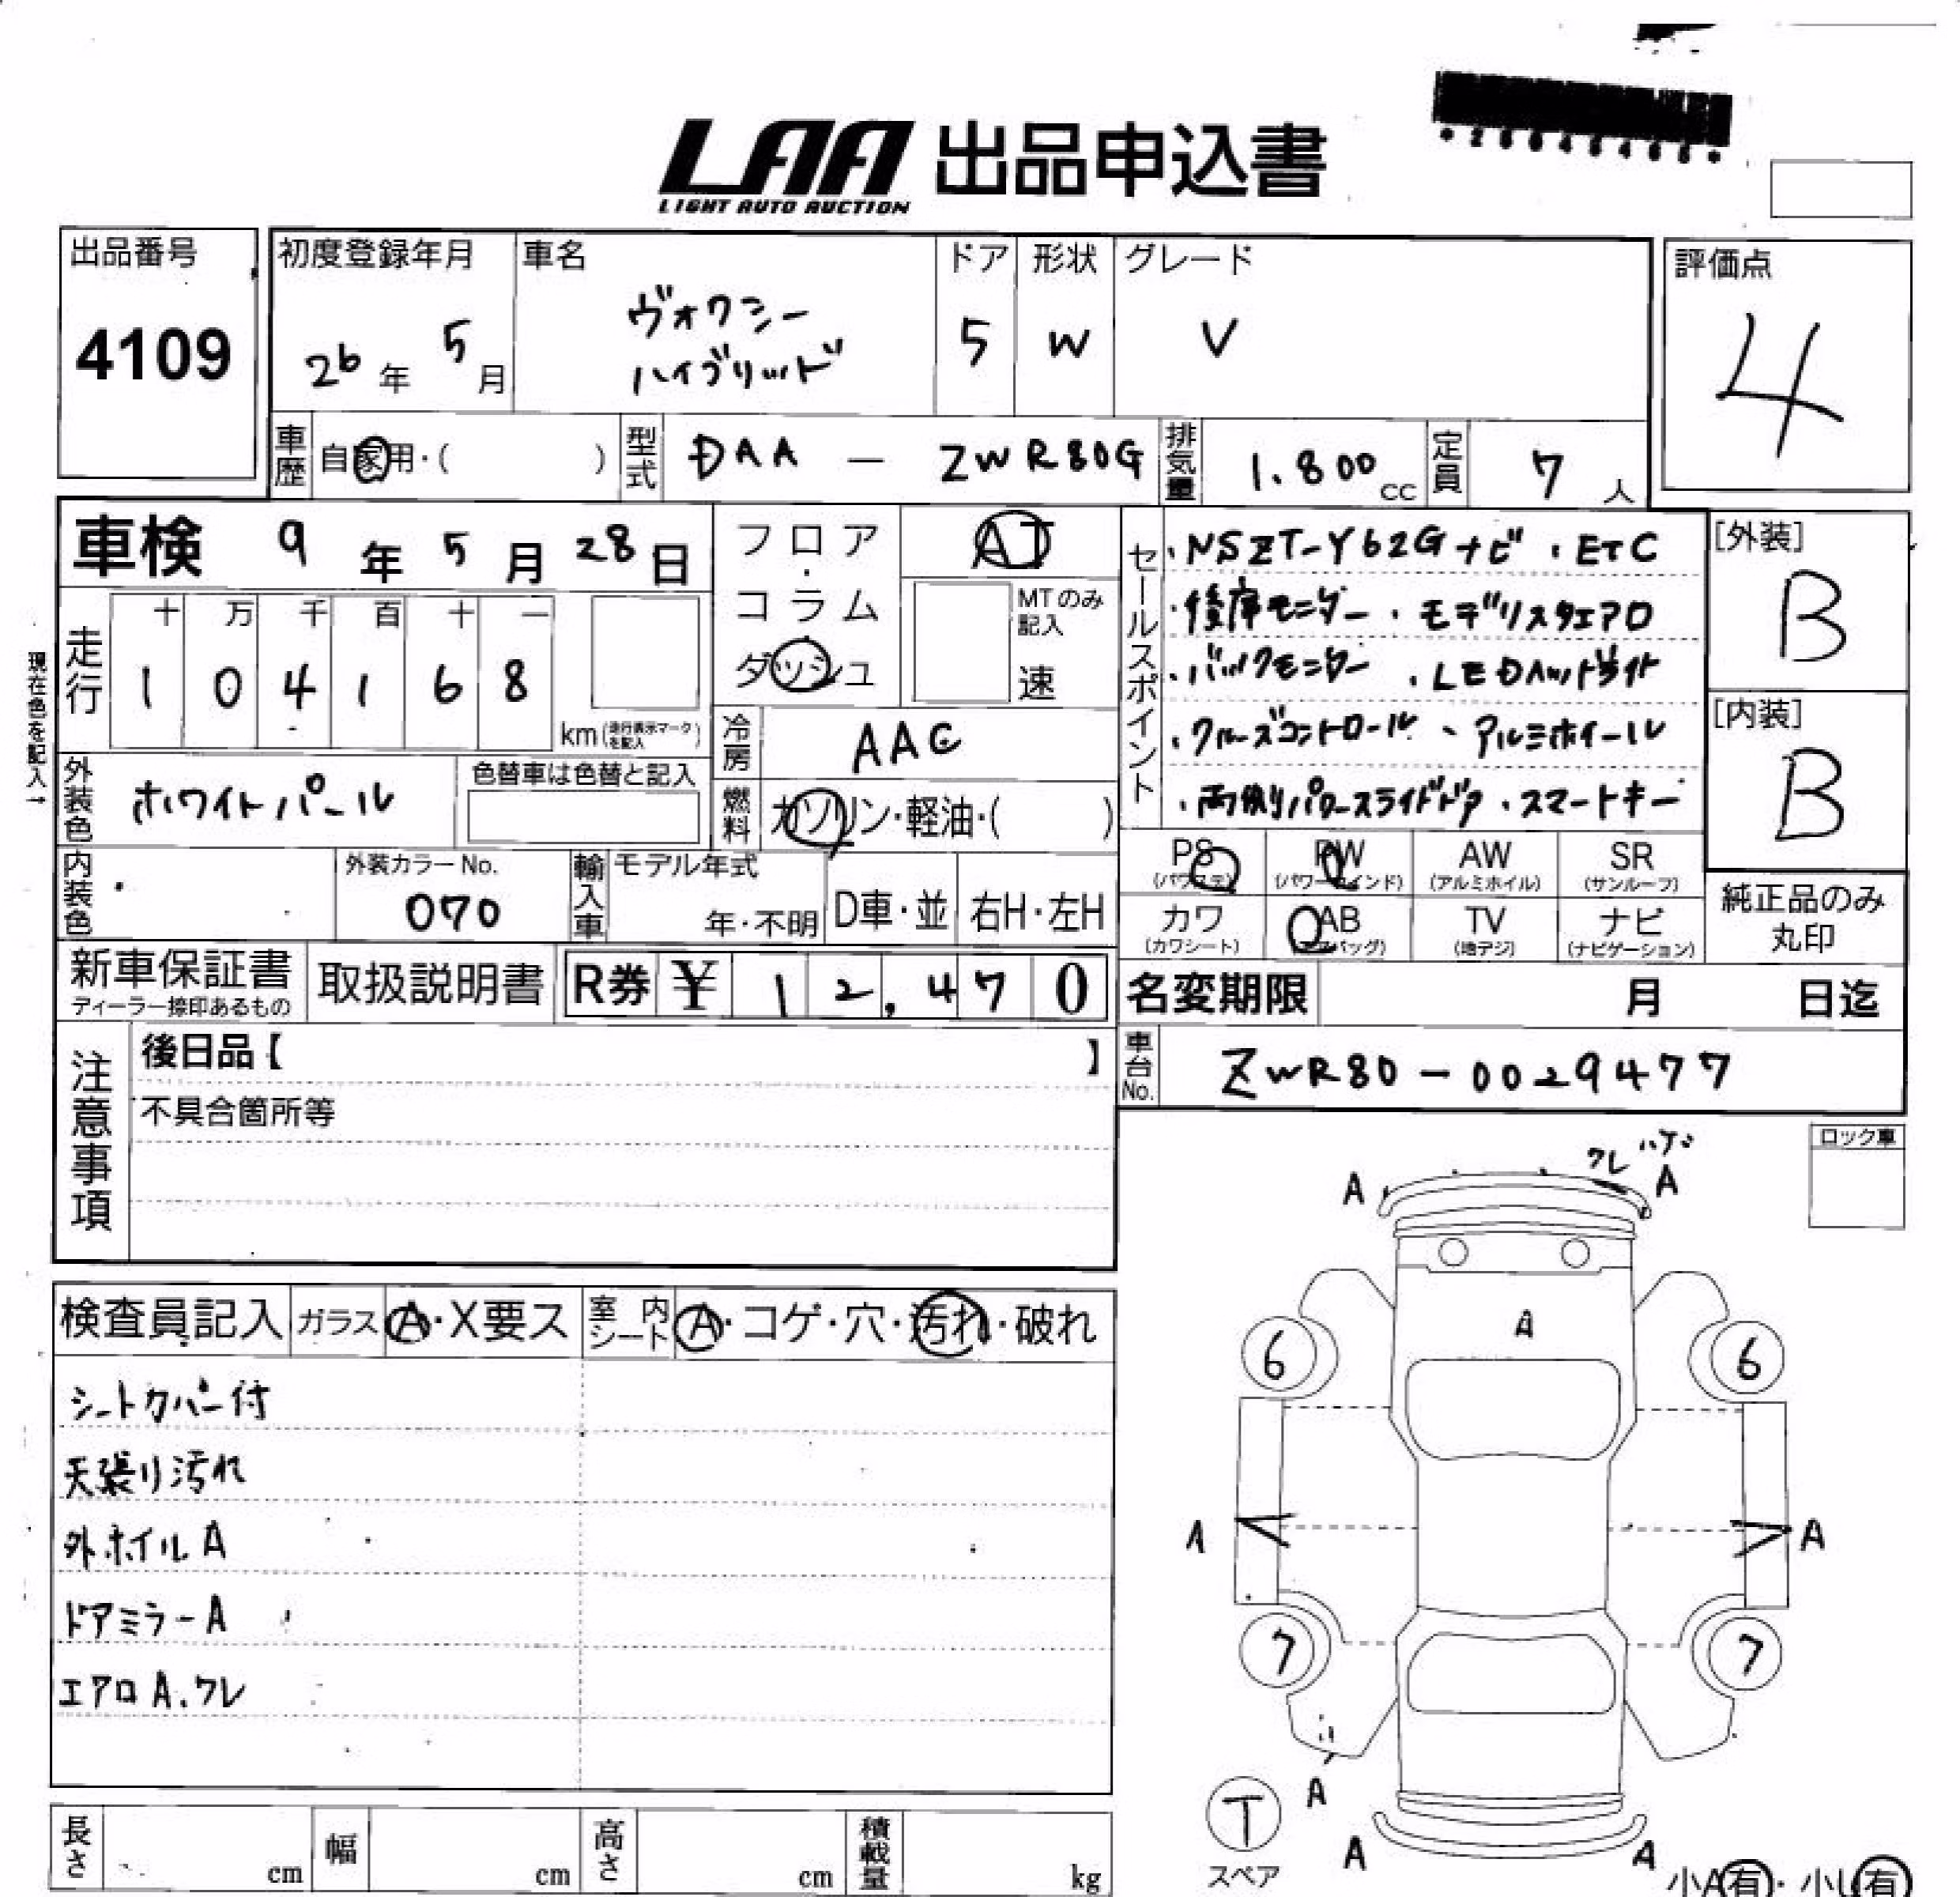 LAA 出品申込書
LIGHT AUTO AUCTION
出品番号
4109
初度登録年月
26年 5月
車名
ヴォクシー
ハイブリッド
ドア
5
形状
W
グレード
V
評価点
4
車歴 自家用・( )
型式 DAA - ZWR80G
排気量 1.800cc
定員 7人
車検 9年 5月 28日
フロア・コラム・ダッシュ
AT
MTのみ記入
速
セールスポイント
・NSZT-Y62Gナビ ・ETC
・後席モニター ・モデリスタエアロ
・バックモニター ・LEDヘッドライト
・クルーズコントロール ・アルミホイール
・両側パワースライドドア ・スマートキー
[外装]
B
[内装]
B
現在色を記入→
走行
十 万 千 百 十 一
1 0 4 1 6 8
km(走行表示マークを記入)
冷房 AAC
外装色 ホワイトパール
色替車は色替と記入
燃料 ガソリン・軽油・( )
内装色
外装カラーNo.
070
輸入車
モデル年式
年・不明
D車・並
右H・左H
PS (パワステ)
PW (パワーウインド)
AW (アルミホイル)
SR (サンルーフ)
カワ (カワシート)
AB (エアバッグ)
TV (地デジ)
ナビ (ナビゲーション)
純正品のみ
丸印
新車保証書
ディーラー捺印あるもの
取扱説明書
R券 ¥ 12,470
名変期限 月 日迄
注意事項
後日品【 】
不具合箇所等
車台No. ZWR80-0029477
ロック車
検査員記入
ガラス A・X要ス
室内シート A・コゲ・穴・汚れ・破れ
シートカバー付
天張り汚れ
外ホイルA
ドアミラーA
エアロA.ワレ
A ワレ ハゲ A
A
6 6
A A
7 7
A
T
スペア
A A
小A有・小U有
長さ cm
幅 cm
高さ cm
積載量 kg